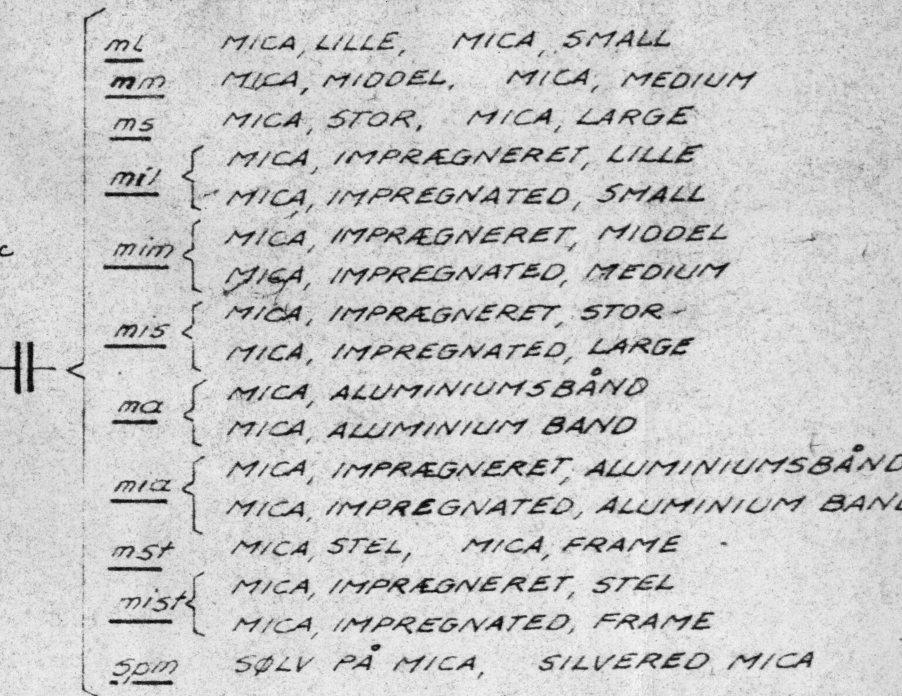 ml MICA, LILLE, MICA, SMALL
mm MICA, MIDDEL, MICA, MEDIUM
ms MICA, STOR, MICA, LARGE
mil MICA, IMPRÆGNERET, LILLE
MICA, IMPREGNATED, SMALL
c
mim MICA, IMPRÆGNERET, MIDDEL
MICA, IMPREGNATED, MEDIUM
mis MICA, IMPRÆGNERET, STOR
MICA, IMPREGNATED, LARGE
ma MICA, ALUMINIUMSBÅND
MICA, ALUMINIUM BAND
mia MICA, IMPRÆGNERET, ALUMINIUMSBÅND
MICA, IMPREGNATED, ALUMINIUM BAND
mst MICA, STEL, MICA, FRAME
mist MICA, IMPRÆGNERET, STEL
MICA, IMPREGNATED, FRAME
spm SØLV PÅ MICA, SILVERED MICA